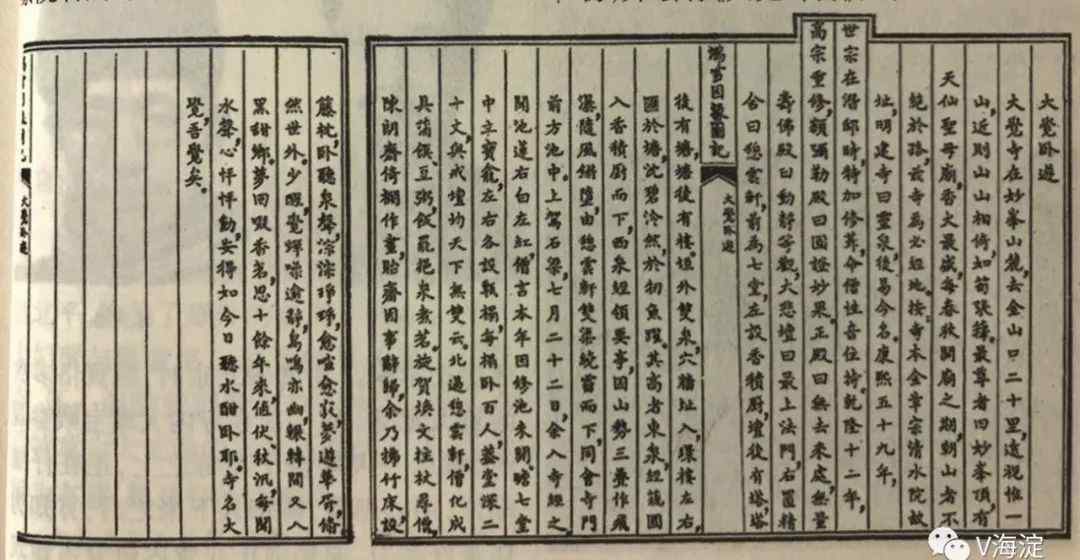 大覺卧遊
大覺寺在妙峯山麓,去金山口二十里,遠視惟一
山,近則山山相倚,如筍張籜。最尊者曰妙峯頂,有
天仙聖母廟,香火最盛,每春秋開廟之期,朝山者不
絕於路,茲寺為必經地。按寺本金章宗清水院故
址,明建寺曰靈泉,後易今名。康熙五十九年,
世宗在潛邸時,特加修葺,命僧性音住持。乾隆十二年,
高宗重修,額彌勒殿曰圓證妙果。正殿曰無去來處,無量
壽佛殿曰動靜等觀,大悲壇曰最上法門,右置精
舍曰憩雲軒,前為七堂,左設香積廚,壇後有塔,塔
鴻雪因緣圖記
大覺卧遊
後有塘,塘後有樓。垣外雙泉,穴牆址入,環樓左右,
匯於塘,沈碧泠然,於牣魚躍。其高者東泉,經蔬圃
入香積廚而下,西泉經領要亭,因山勢三疊作飛
瀑,隨風錯墮,由憩雲軒雙渠繞霤而下,同會寺門
前方池中。上駕石梁,七月二十二日,余入寺經之,
閱池蓮右白左紅,僧言本年因修池未開。瞻七堂
中立寶龕,左右各設瓶榻,每榻卧百人,基堂深二
十丈,與戒壇均天下無雙云。北過憩雲軒,僧化成
具蒲饌、豆粥,飯罷,挹泉煮茗。旋賀煥文柱杖尋僧,
陳朗齋倚欄作畫,貽齋因事辭歸,余乃拂竹床,設
藤枕,卧聽泉聲,淙淙琤琤,愈喧愈寂,夢遊華胥,翛
然世外。少醒,覺蟬噪逾靜,鳥鳴亦幽,輾轉間又入
黑甜鄉。夢回啜香茗,思十餘年來,值伏秋汛,每聞
水聲,心怦怦動,安得如今日聽水酣卧耶。寺名大
覺,吾覺矣。
大覺卧遊
V海淀